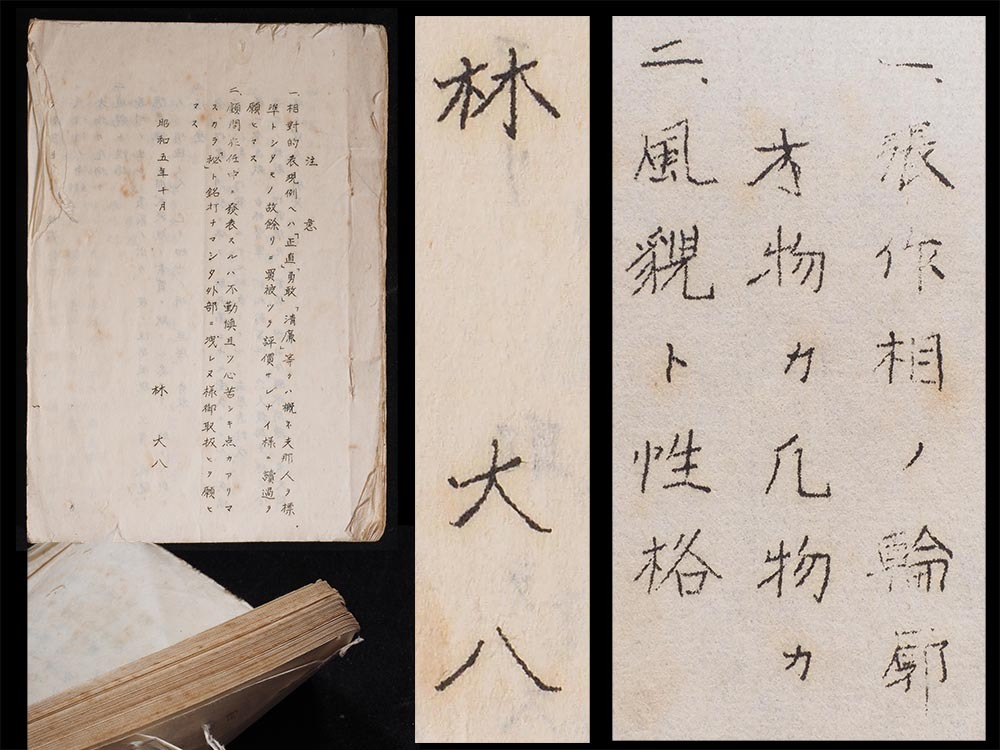 注意
一、相對的表現例ヘハ「正直」「勇敢」「清廉」等々ハ概ネ支那人ヲ標
準トシタモノ故餘リニ買被ツタ評價サレナイ様ニ讀過ヲ
願ヒマス
二、顧問在任中ニ發表スルハ不勤愼且ツ心苦シキ点カアリマ
スカラ「秘」ト銘打チマシタ外部ニ洩レヌ様御取扱ヒヲ願ヒ
マス
昭和五年十月
林大八
林大八
一、張作相ノ輪廓
才物カ凡物カ
二、風貌ト性格